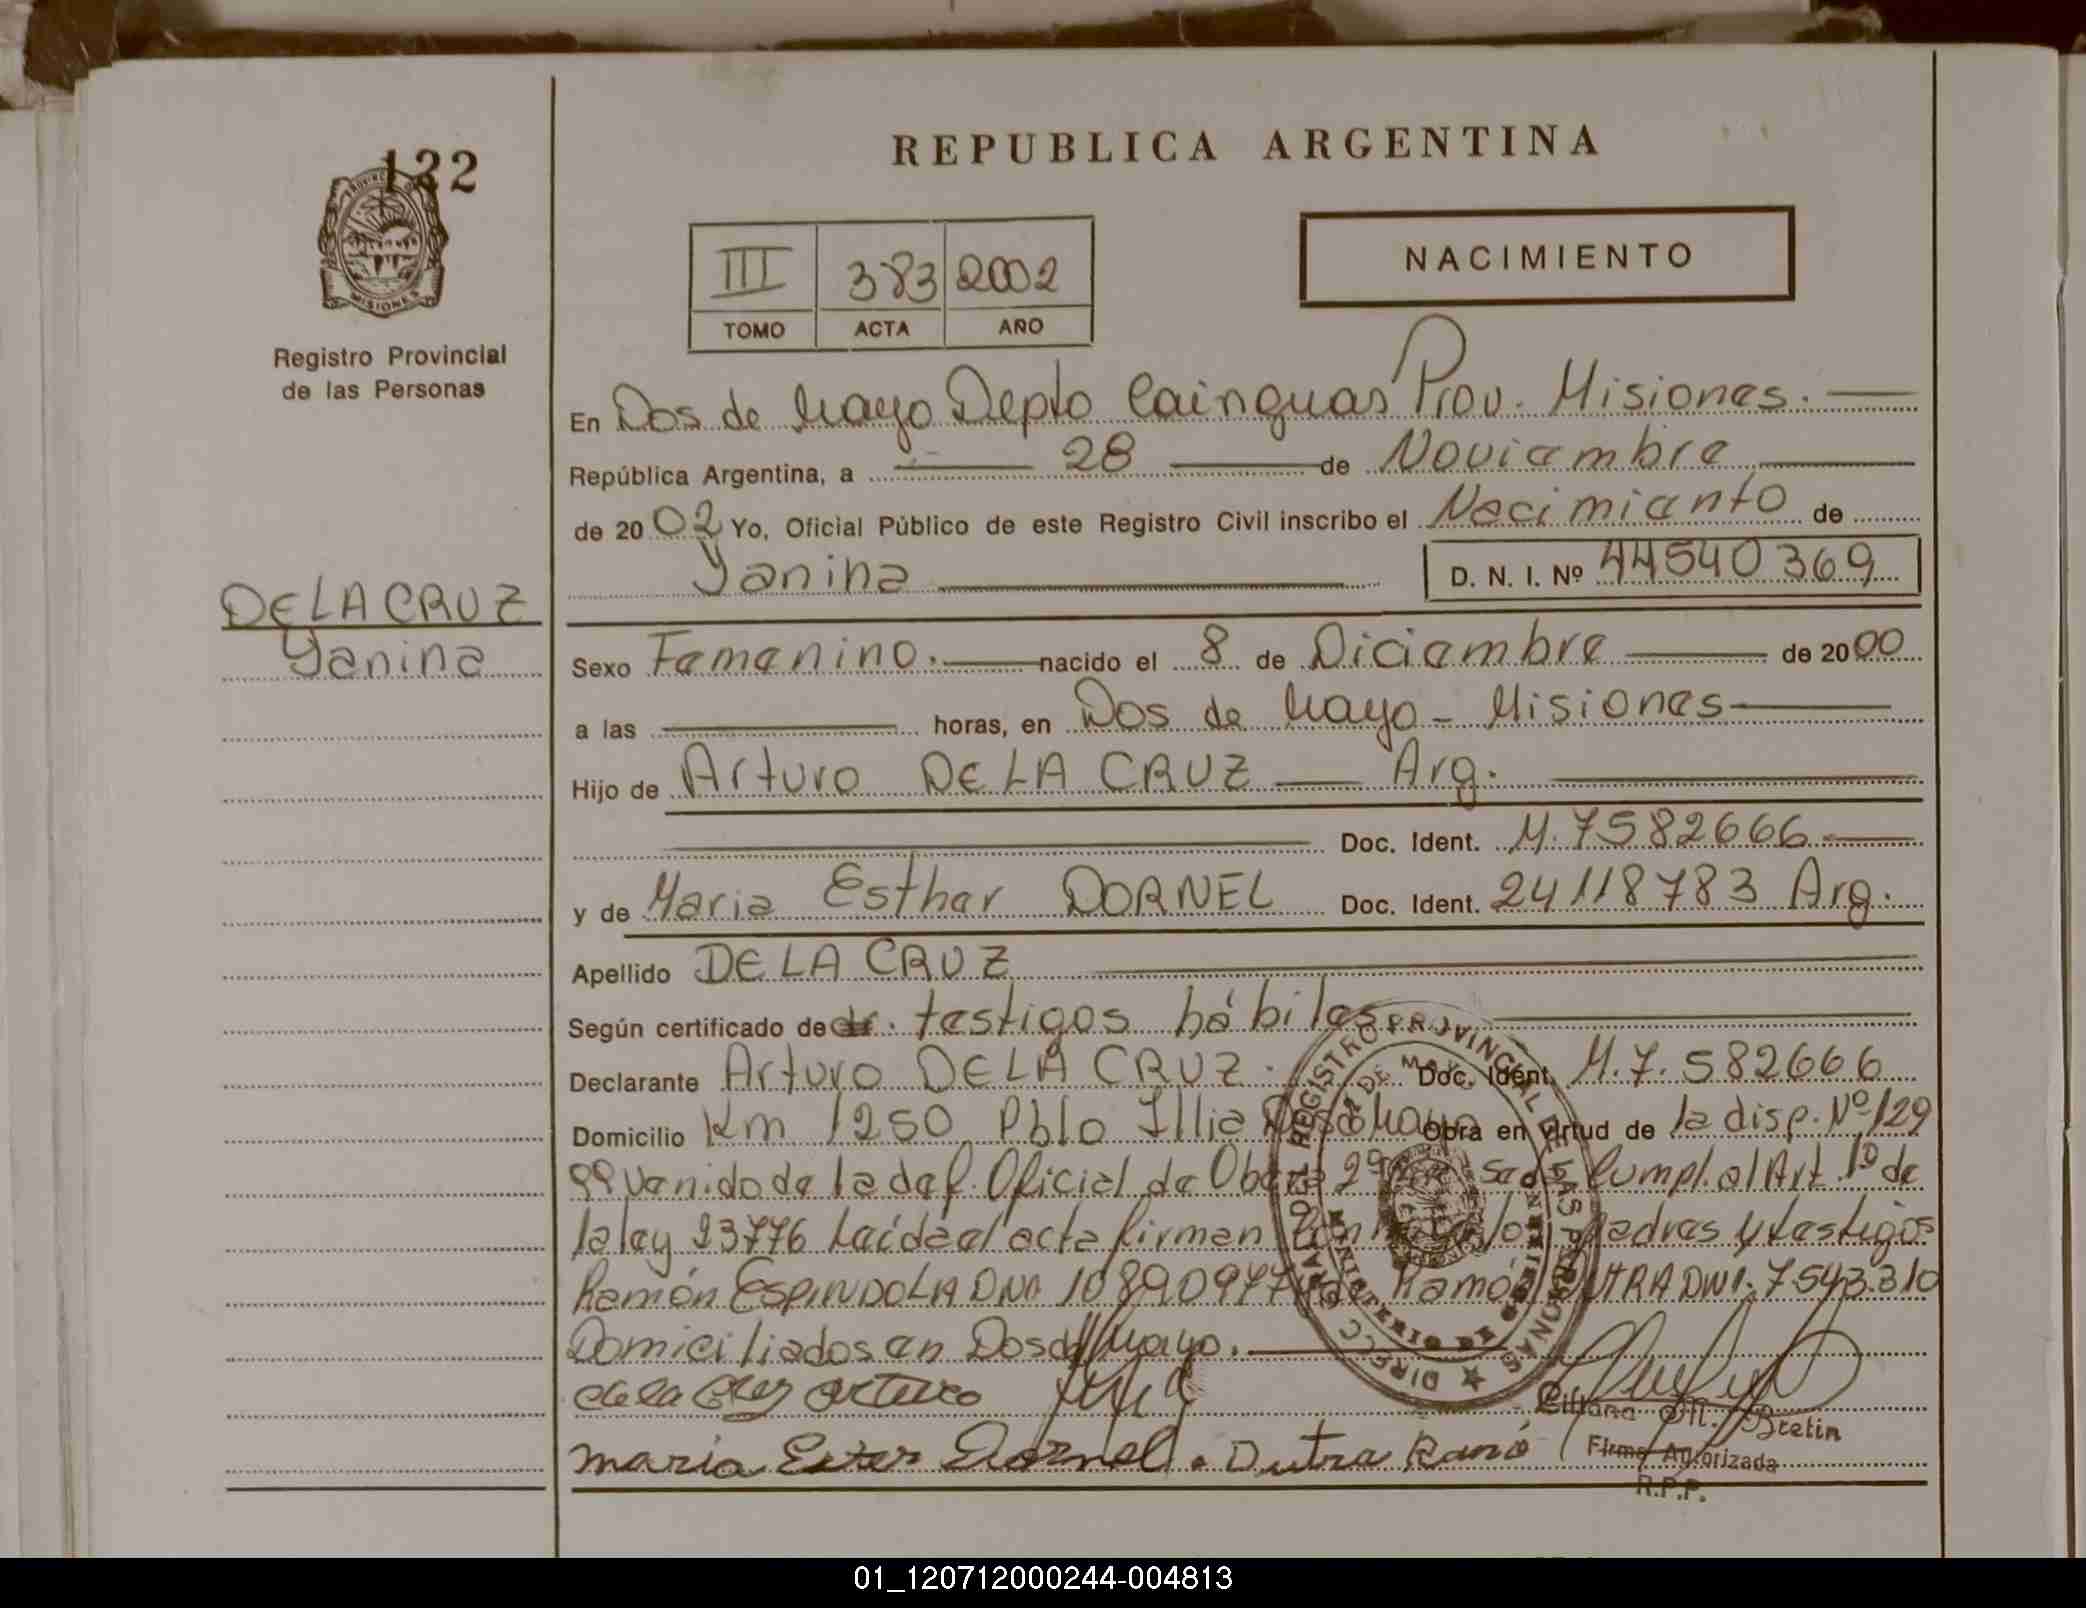 132
PROVINCIA
MISIONES
Registro Provincial
de las Personas
REPUBLICA ARGENTINA
III 383 2002
TOMO ACTA AÑO
NACIMIENTO
En Dos de Mayo Depto Cainguas Prov. Misiones.
República Argentina, a 28 de Noviembre
de 2002 Yo, Oficial Público de este Registro Civil inscribo el Nacimiento de
Yanina D. N. I. Nº 44540369
DE LA CRUZ
Yanina
Sexo Femenino. nacido el 8 de Diciembre de 2000
a las horas, en Dos de Mayo - Misiones
Hijo de Arturo DE LA CRUZ Arg.
Doc. Ident. M. 7582666
y de Maria Esther DORNEL Doc. Ident. 24118783 Arg.
Apellido DE LA CRUZ
Según certificado de testigos hábiles
Declarante Arturo DE LA CRUZ. Doc. Ident. M. 7.582666
Domicilio Km 1250 Pblo Illia Dos de Mayo Obra en virtud de la disp. Nº 129
99 venido de la def. Oficial de Oberá 2º se da Cumpl. al Art. 1º de
la ley 23776 Leída el acta firman los padres y testigos
Ramón ESPINDOLA DNI 10890977 Ramón DUTRA DNI: 7.543.310
Domiciliados en Dos de Mayo.
de la Cruz Arturo
maria Ester Dornel . Dutra Ramó
M. Bretin
Firma Autorizada
R.P.P.
DIRECC. GRAL. DEL REGISTRO PROVINCIAL DE LAS PERSONAS
01_120712000244-004813